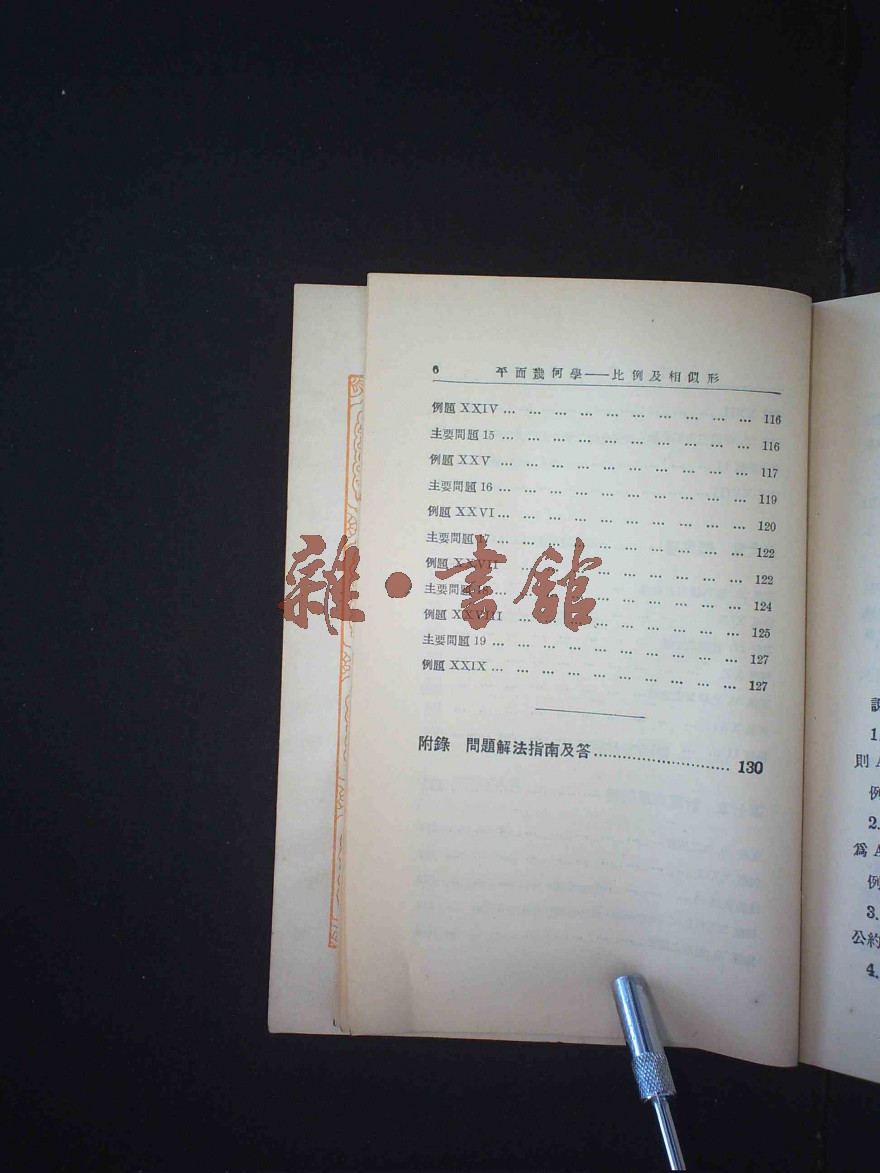 6 平面幾何學——比例及相似形
例題 XXIV ... ... ... ... ... ... ... ... ... ... 116
主要問題 15 ... ... ... ... ... ... ... ... ... ... 116
例題 XXV ... ... ... ... ... ... ... ... ... ... 117
主要問題 16 ... ... ... ... ... ... ... ... ... ... 119
例題 XXVI ... ... ... ... ... ... ... ... ... ... 120
主要問題 17 ... ... ... ... ... ... ... ... ... ... 122
例題 XXVII ... ... ... ... ... ... ... ... ... 122
主要問題 18 ... ... ... ... ... ... ... ... ... ... 124
例題 XXVIII ... ... ... ... ... ... ... ... ... 125
主要問題 19 ... ... ... ... ... ... ... ... ... ... 127
例題 XXIX ... ... ... ... ... ... ... ... ... ... 127
附錄 問題解法指南及答 .......................... 130
雜·書館
1.
則 A
例
2.
爲 A
例
3.
公約
4.